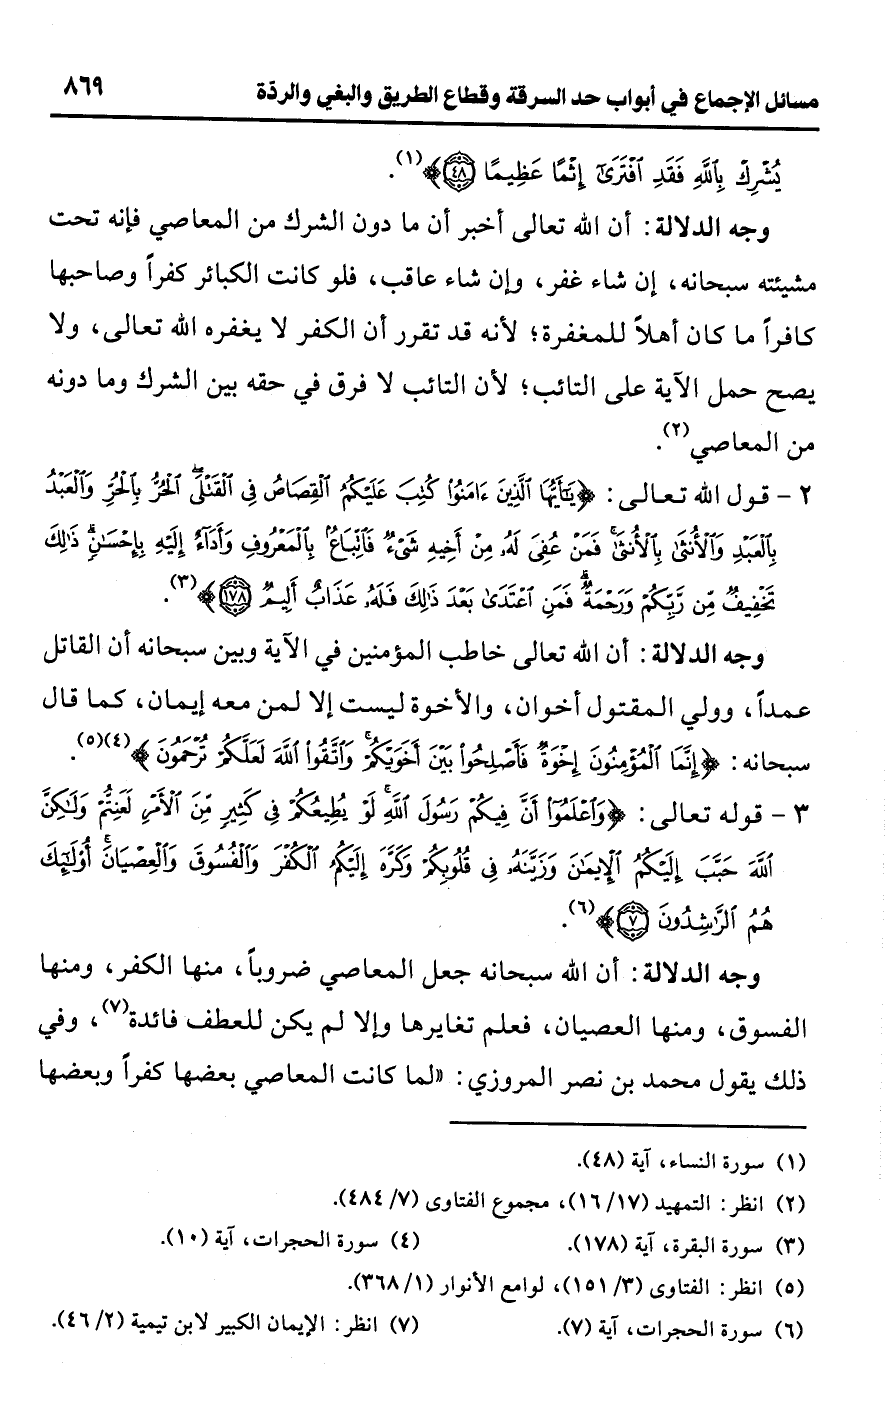 مسائل الإجماع في أبواب حد السرقة وقطاع الطريق والبغي والردّة ٨٦٩
يُشْرِكْ بِٱللَّهِ فَقَدِ ٱفْتَرَىٰٓ إِثْمًا عَظِيمًا ۝٤٨﴾(١).
وجه الدلالة: أن الله تعالى أخبر أن ما دون الشرك من المعاصي فإنه تحت
مشيئته سبحانه، إن شاء غفر، وإن شاء عاقب، فلو كانت الكبائر كفراً وصاحبها
كافراً ما كان أهلاً للمغفرة؛ لأنه قد تقرر أن الكفر لا يغفره الله تعالى، ولا
يصح حمل الآية على التائب؛ لأن التائب لا فرق في حقه بين الشرك وما دونه
من المعاصي(٢).
٢ - قول الله تعالى: ﴿يَـٰٓأَيُّهَا ٱلَّذِينَ ءَامَنُوا۟ كُتِبَ عَلَيْكُمُ ٱلْقِصَاصُ فِى ٱلْقَتْلَىۖ ٱلْحُرُّ بِٱلْحُرِّ وَٱلْعَبْدُ
بِٱلْعَبْدِ وَٱلْأُنثَىٰ بِٱلْأُنثَىٰۚ فَمَنْ عُفِىَ لَهُۥ مِنْ أَخِيهِ شَىْءٌ فَٱتِّبَاعٌۢ بِٱلْمَعْرُوفِ وَأَدَآءٌ إِلَيْهِ بِإِحْسَـٰنٍۗ ذَٰلِكَ
تَخْفِيفٌ مِّن رَّبِّكُمْ وَرَحْمَةٌۗ فَمَنِ ٱعْتَدَىٰ بَعْدَ ذَٰلِكَ فَلَهُۥ عَذَابٌ أَلِيمٌ ۝١٧٨﴾(٣).
وجه الدلالة: أن الله تعالى خاطب المؤمنين في الآية وبين سبحانه أن القاتل
عمداً، وولي المقتول أخوان، والأخوة ليست إلا لمن معه إيمان، كما قال
سبحانه: ﴿إِنَّمَا ٱلْمُؤْمِنُونَ إِخْوَةٌ فَأَصْلِحُوا۟ بَيْنَ أَخَوَيْكُمْۚ وَٱتَّقُوا۟ ٱللَّهَ لَعَلَّكُمْ تُرْحَمُونَ﴾(٤)(٥).
٣ - قوله تعالى: ﴿وَٱعْلَمُوٓا۟ أَنَّ فِيكُمْ رَسُولَ ٱللَّهِۚ لَوْ يُطِيعُكُمْ فِى كَثِيرٍ مِّنَ ٱلْأَمْرِ لَعَنِتُّمْ وَلَـٰكِنَّ
ٱللَّهَ حَبَّبَ إِلَيْكُمُ ٱلْإِيمَـٰنَ وَزَيَّنَهُۥ فِى قُلُوبِكُمْ وَكَرَّهَ إِلَيْكُمُ ٱلْكُفْرَ وَٱلْفُسُوقَ وَٱلْعِصْيَانَۚ أُو۟لَـٰٓئِكَ
هُمُ ٱلرَّٰشِدُونَ ۝٧﴾(٦).
وجه الدلالة: أن الله سبحانه جعل المعاصي ضروباً، منها الكفر، ومنها
الفسوق، ومنها العصيان، فعلم تغايرها وإلا لم يكن للعطف فائدة(٧)، وفي
ذلك يقول محمد بن نصر المروزي: «لما كانت المعاصي بعضها كفراً وبعضها
(١) سورة النساء، آية (٤٨).
(٢) انظر: التمهيد (١٦/١٧)، مجموع الفتاوى (٧/ ٤٨٤).
(٣) سورة البقرة، آية (١٧٨). (٤) سورة الحجرات، آية (١٠).
(٥) انظر: الفتاوى (٣/ ١٥١)، لوامع الأنوار (١/ ٣٦٨).
(٦) سورة الحجرات، آية (٧). (٧) انظر: الإيمان الكبير لابن تيمية (٢/ ٤٦).